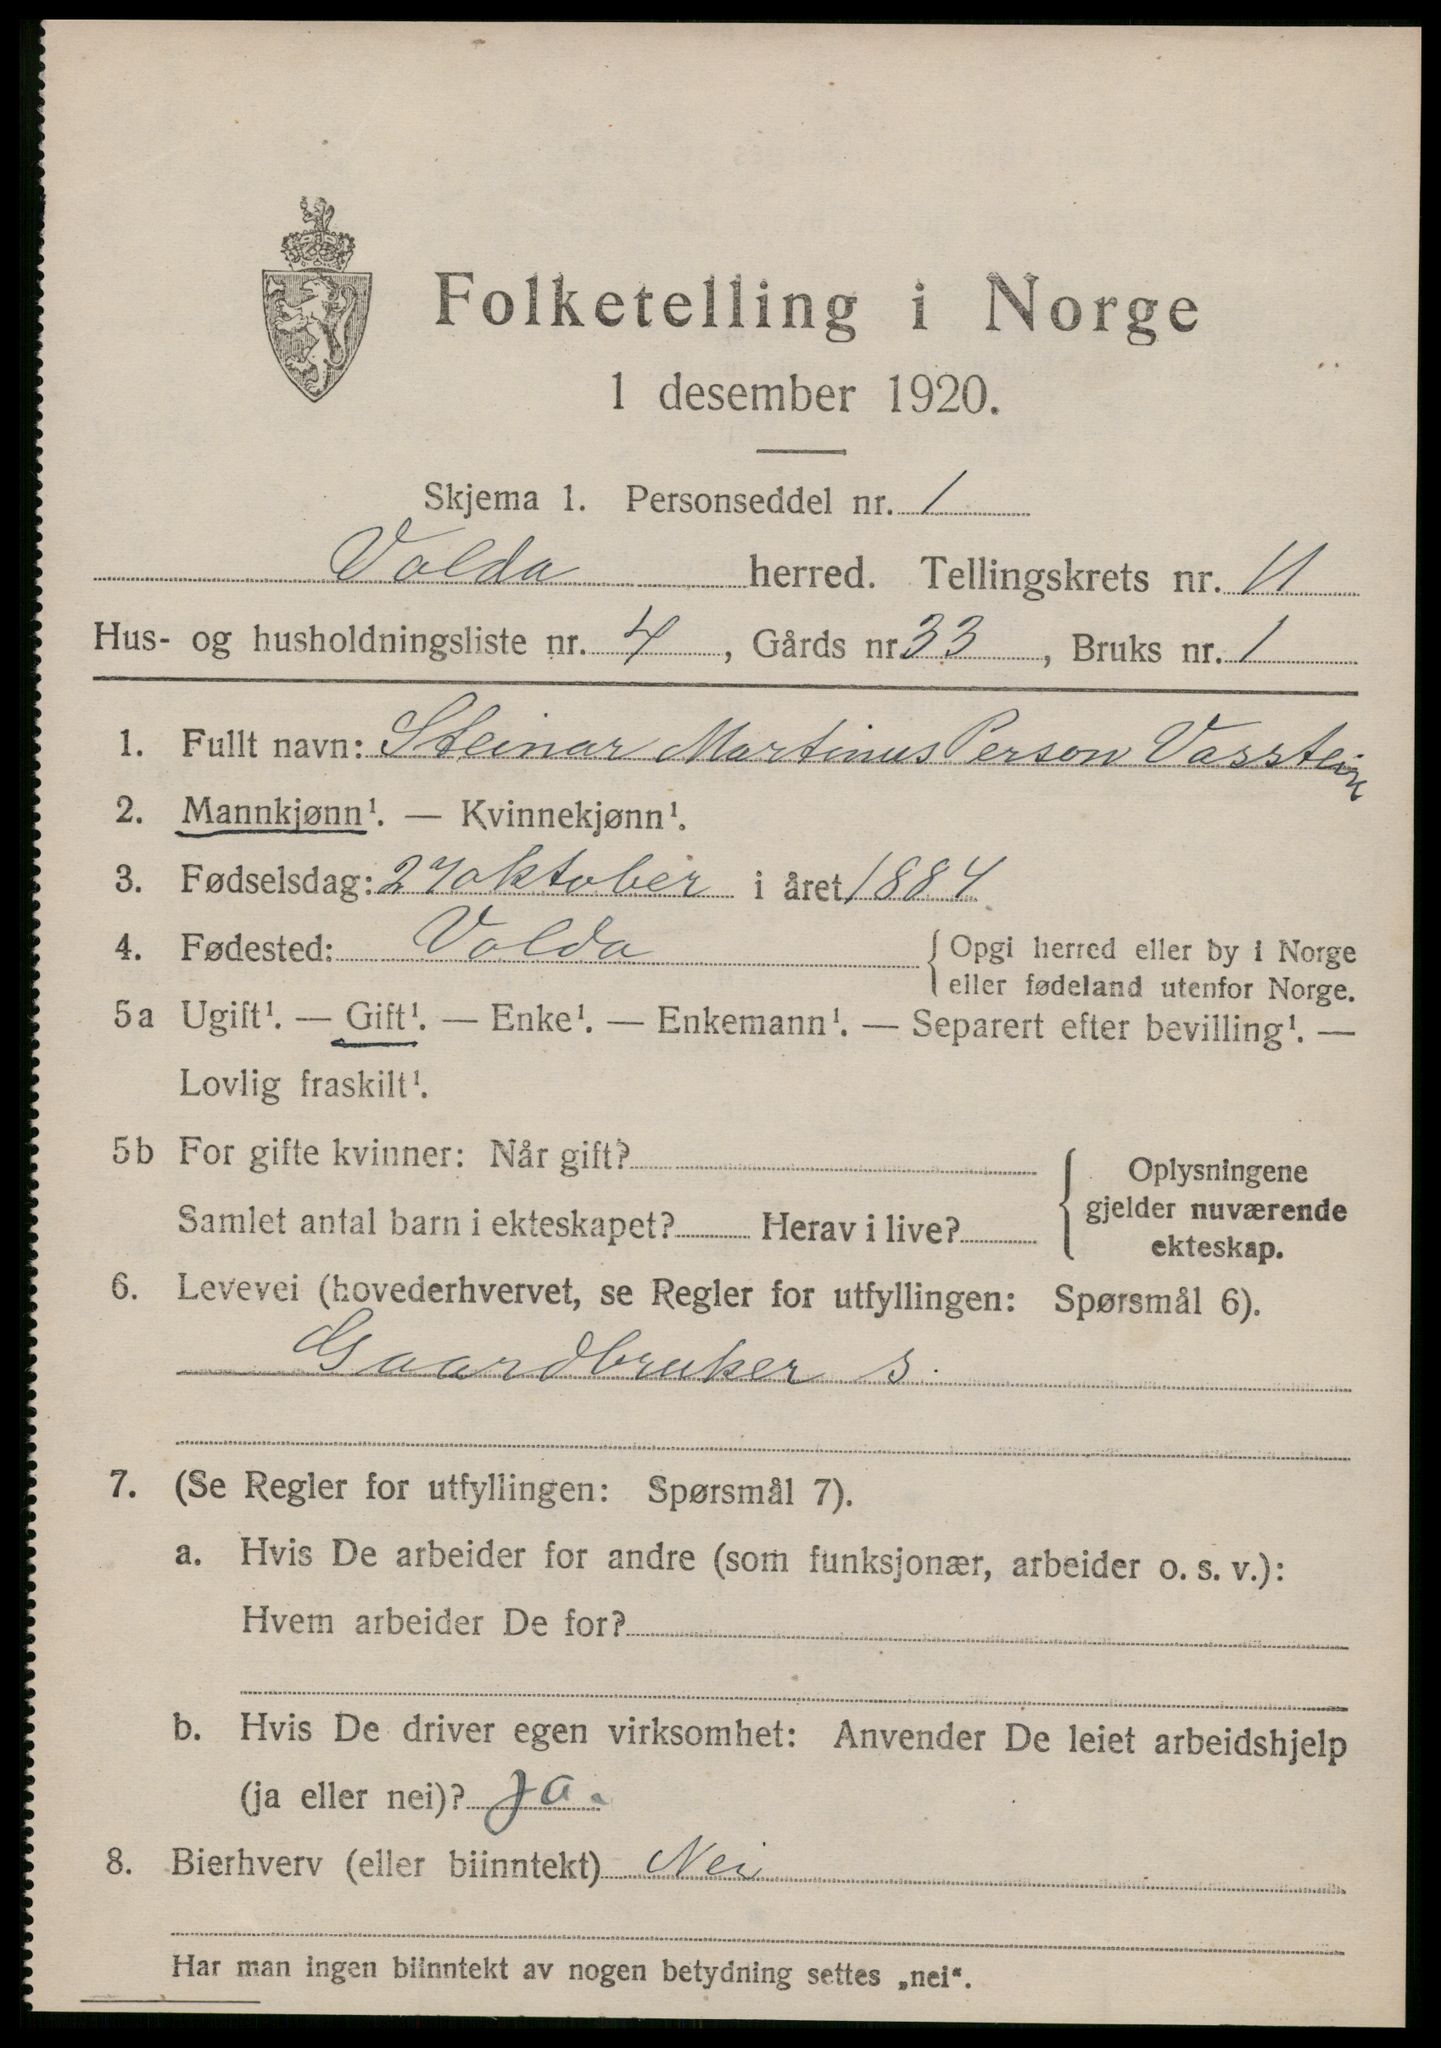 Folketelling i Norge
1 desember 1920.
Skjema 1. Personseddel nr. 1
Volda herred. Tellingskrets nr. 11
Hus- og husholdningsliste nr. 4, Gårds nr 33, Bruks nr. 1
1. Fullt navn: Steinar Martinus Person Vasstein
2. Mannkjønn¹. — Kvinnekjønn¹.
3. Fødselsdag: 27 oktober i året 1884
4. Fødested: Volda { Opgi herred eller by i Norge
eller fødeland utenfor Norge.
5a Ugift¹. — Gift¹. — Enke¹. — Enkemann¹. — Separert efter bevilling¹. —
Lovlig fraskilt¹.
5b For gifte kvinner: Når gift?
Samlet antal barn i ekteskapet? Herav i live?
{ Oplysningene
gjelder nuværende
ekteskap.
6. Levevei (hovederhvervet, se Regler for utfyllingen: Spørsmål 6).
Gaardbruker s.
7. (Se Regler for utfyllingen: Spørsmål 7).
a. Hvis De arbeider for andre (som funksjonær, arbeider o. s. v.):
Hvem arbeider De for?
b. Hvis De driver egen virksomhet: Anvender De leiet arbeidshjelp
(ja eller nei)? Ja.
8. Bierhverv (eller biinntekt) Nei
Har man ingen biinntekt av nogen betydning settes „nei“.